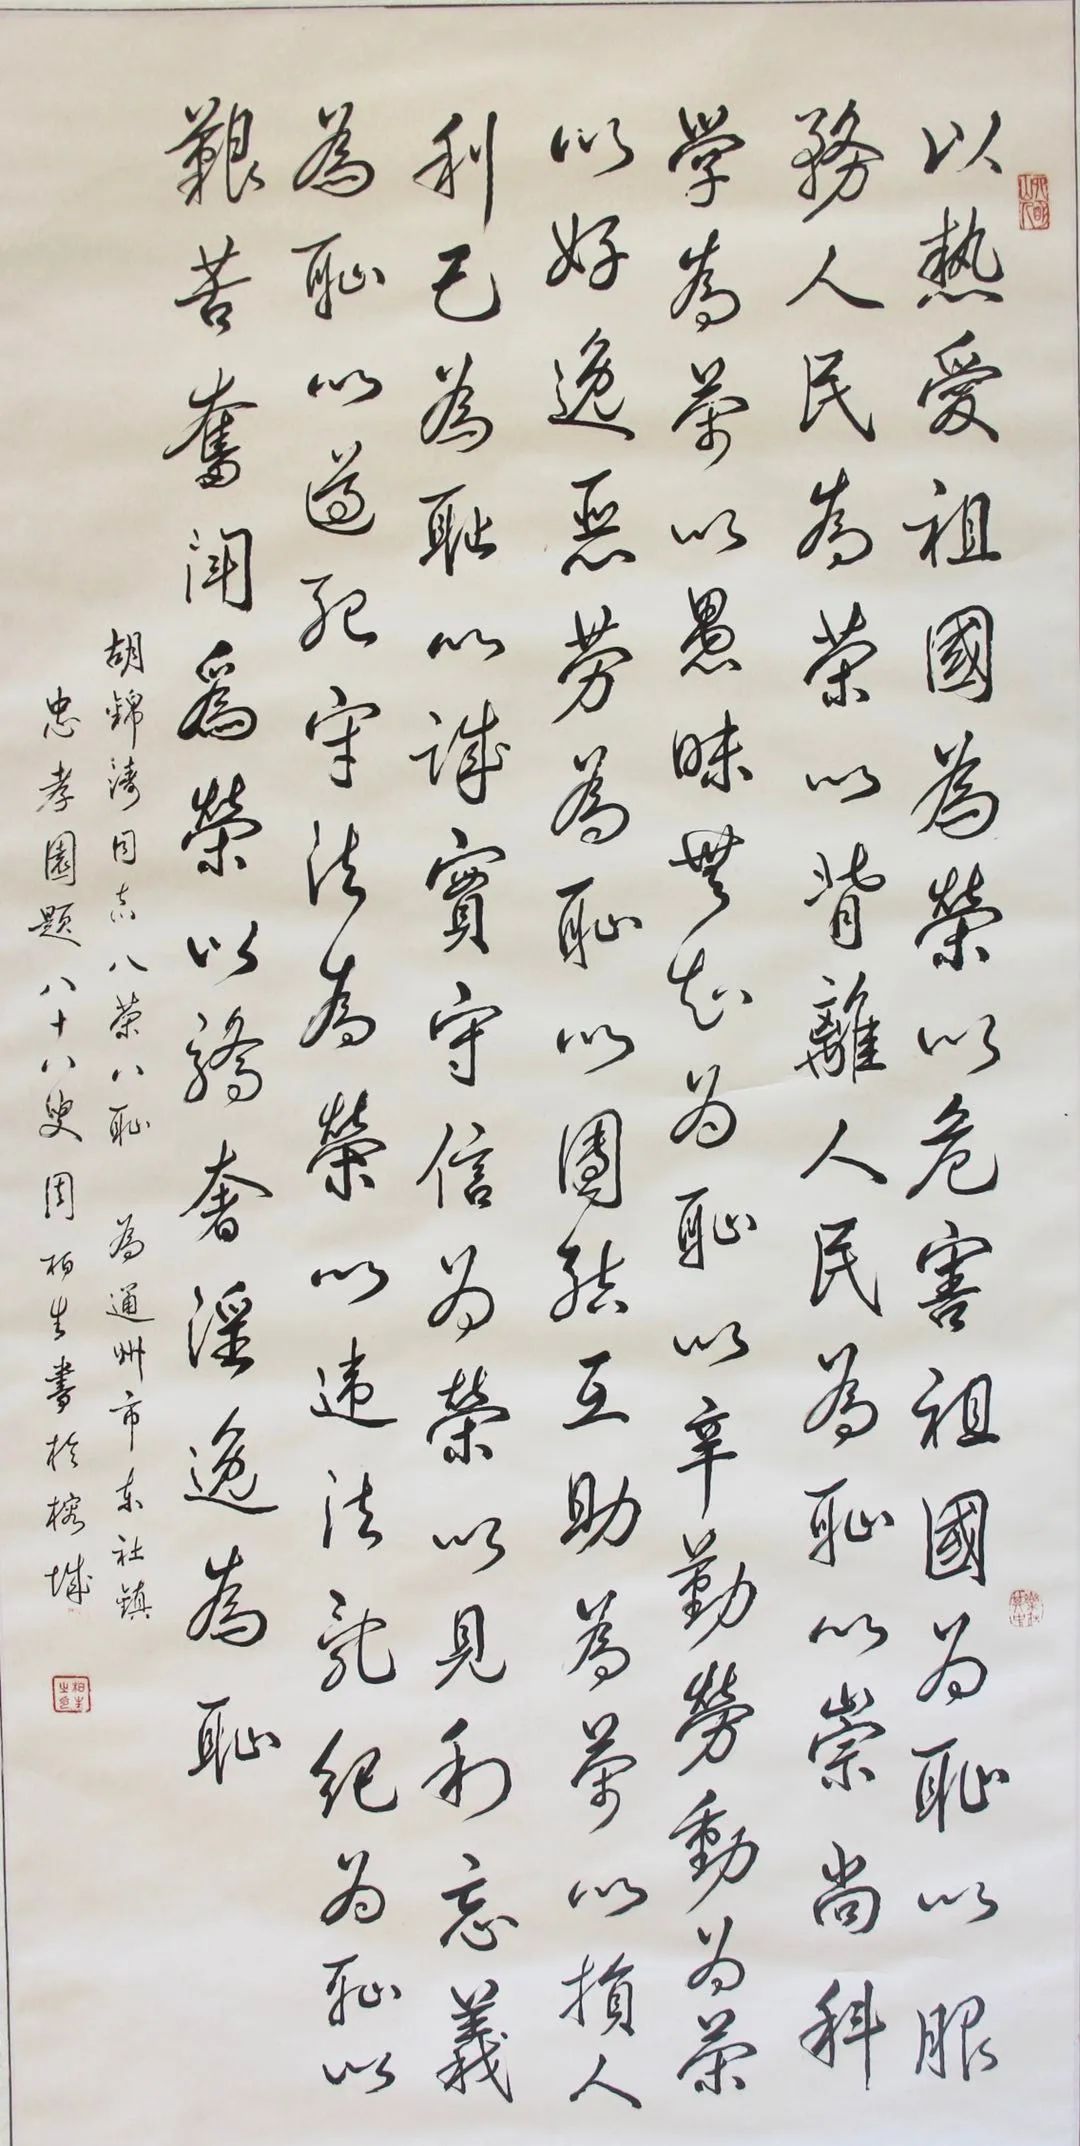 以熱愛祖國為榮以危害祖國为恥以服
務人民為荣以背離人民為恥以崇尚科
学為荣以愚昧無知为恥以辛勤勞動为荣
以好逸恶劳為恥以團結互助為荣以損人
利己為耻以誠實守信为榮以見利忘義
為恥以遵紀守法為榮以违法亂纪为恥以
艱苦奮闘爲榮以驕奢淫逸為恥
胡錦濤同志八荣八恥 為通州市东社鎮
忠孝園题八十八叟周柏生書於榕城